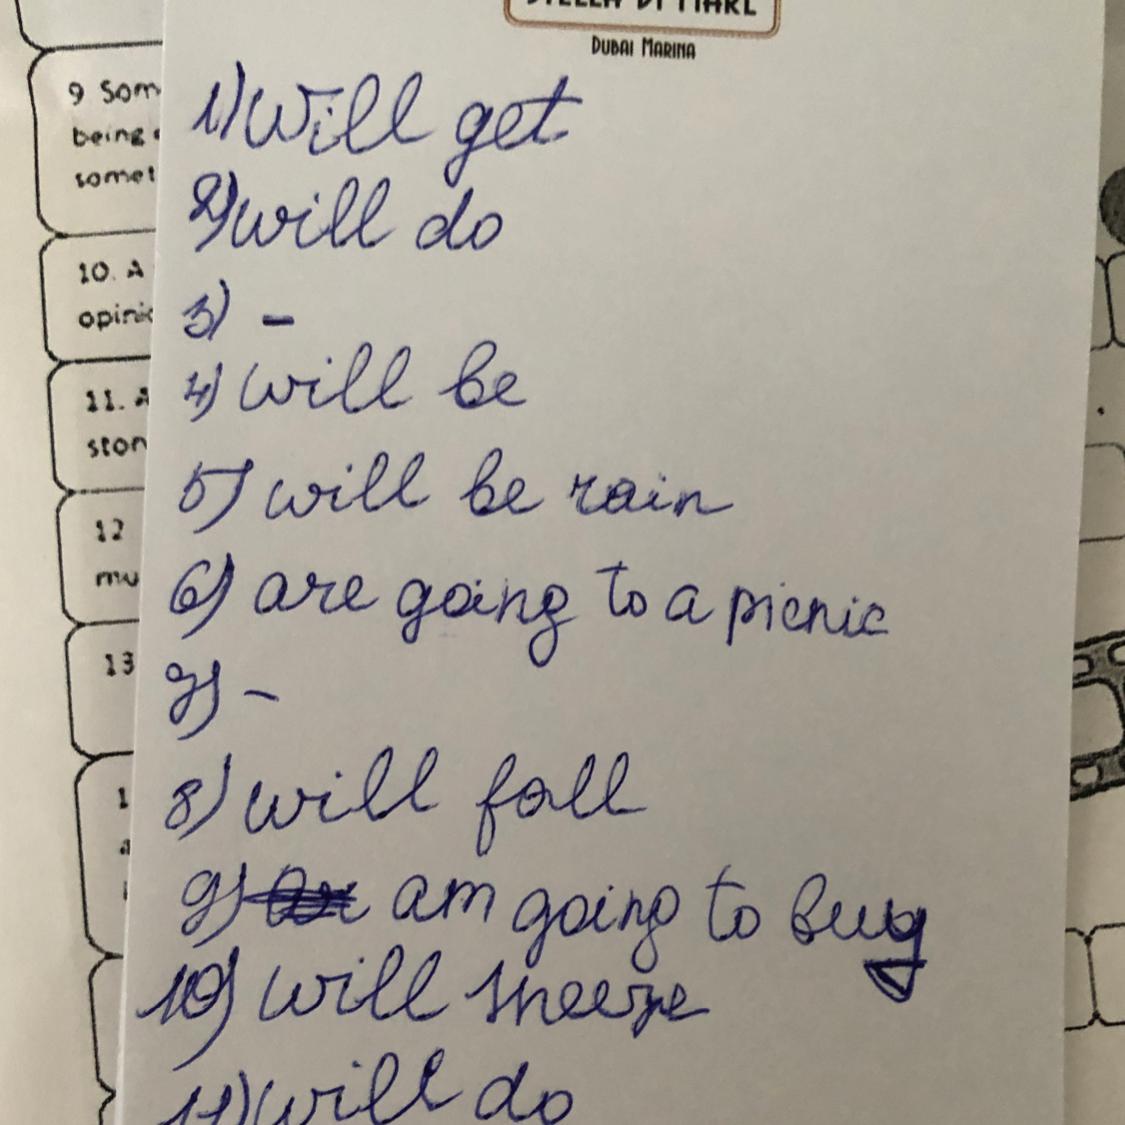 STELLA DI MARE
DUBAI MARINA
1) will get
2) will do
3) -
4) will be
5) will be rain
6) are going to a picnic
7) -
8) will fall
9) am going to buy
10) will sneeze
11) will do
9 Som
being
somet
10. A
opinio
11. A
ston
12
mu
13
1